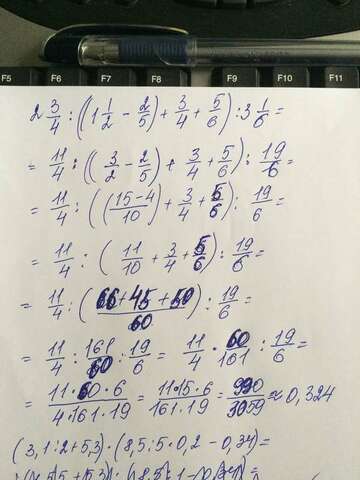 F5 F6 F7 F8 F9 F10 F11
2 3/4 : ((1 1/2 - 2/5) + 3/4 + 5/6) : 3 1/6 =
= 11/4 : ((3/2 - 2/5) + 3/4 + 5/6) : 19/6 =
= 11/4 : ((15-4)/10) + 3/4 + 5/6) : 19/6 =
= 11/4 : (11/10 + 3/4 + 5/6) : 19/6 =
= 11/4 : (66+45+50)/60 : 19/6 =
= 11/4 : 161/60 : 19/6 = 11/4 · 60/161 : 19/6 =
= 11·60·6/4·161·19 = 11·15·6/161·19 = 990/3059 ≈ 0,324
(3,1:2+5,3)·(8,5:5·0,2-0,34)=